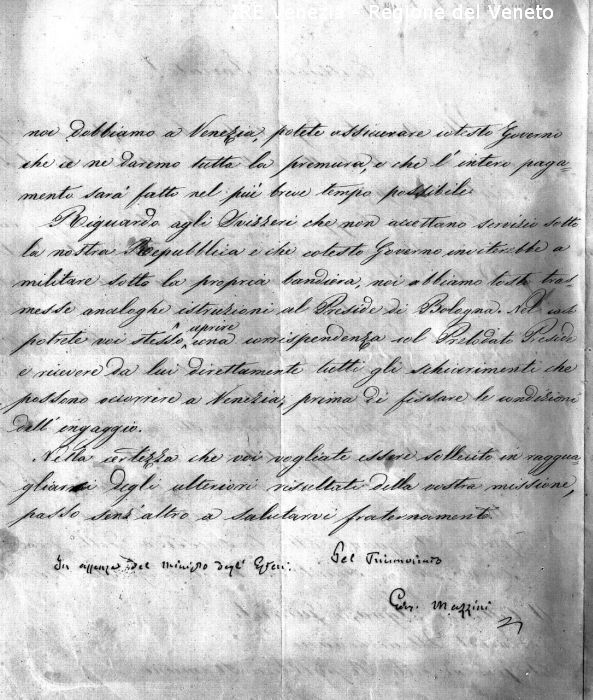 Venezia - Regione del Veneto
noi dobbiamo a Venezia, potete assicurare cotesto Governo
che ce ne daremo tutta la premura, e che l'intero paga-
mento sarà fatto nel più breve tempo possibile.
Riguardo agli Svizzeri che non accettano servizio sotto
la nostra Repubblica e che cotesto Governo inviterebbe a
militare sotto la propria bandiera, noi abbiamo tosto tras-
messe analoghe istruzioni al Preside di Bologna. Nel caso
potrete voi stesso aprire una corrispondenza col Prelodato Preside
e ricevere da lui direttamente tutti gli schiarimenti che
possono occorrere a Venezia, prima di fissare le condizioni
dell'ingaggio.
Nella certezza che voi vogliate essere sollecito in raggua-
gliarmi degli ulteriori risultati della vostra missione,
passo senz'altro a salutarvi fraternamente.
In assenza del Ministro degli Esteri. Pel Triumvirato
Gius. Mazzini